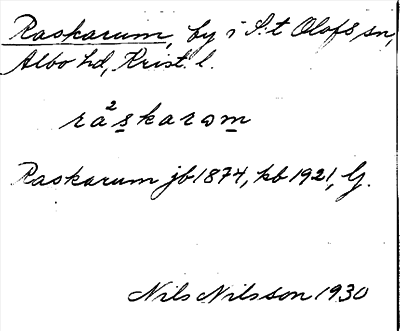 Raskarum, by i S:t Olofs sn,
Albo hd, Krist. l.
rà²skarəm
Raskarum jb 1874, kb 1921, G.
Nils Nilsson 1930